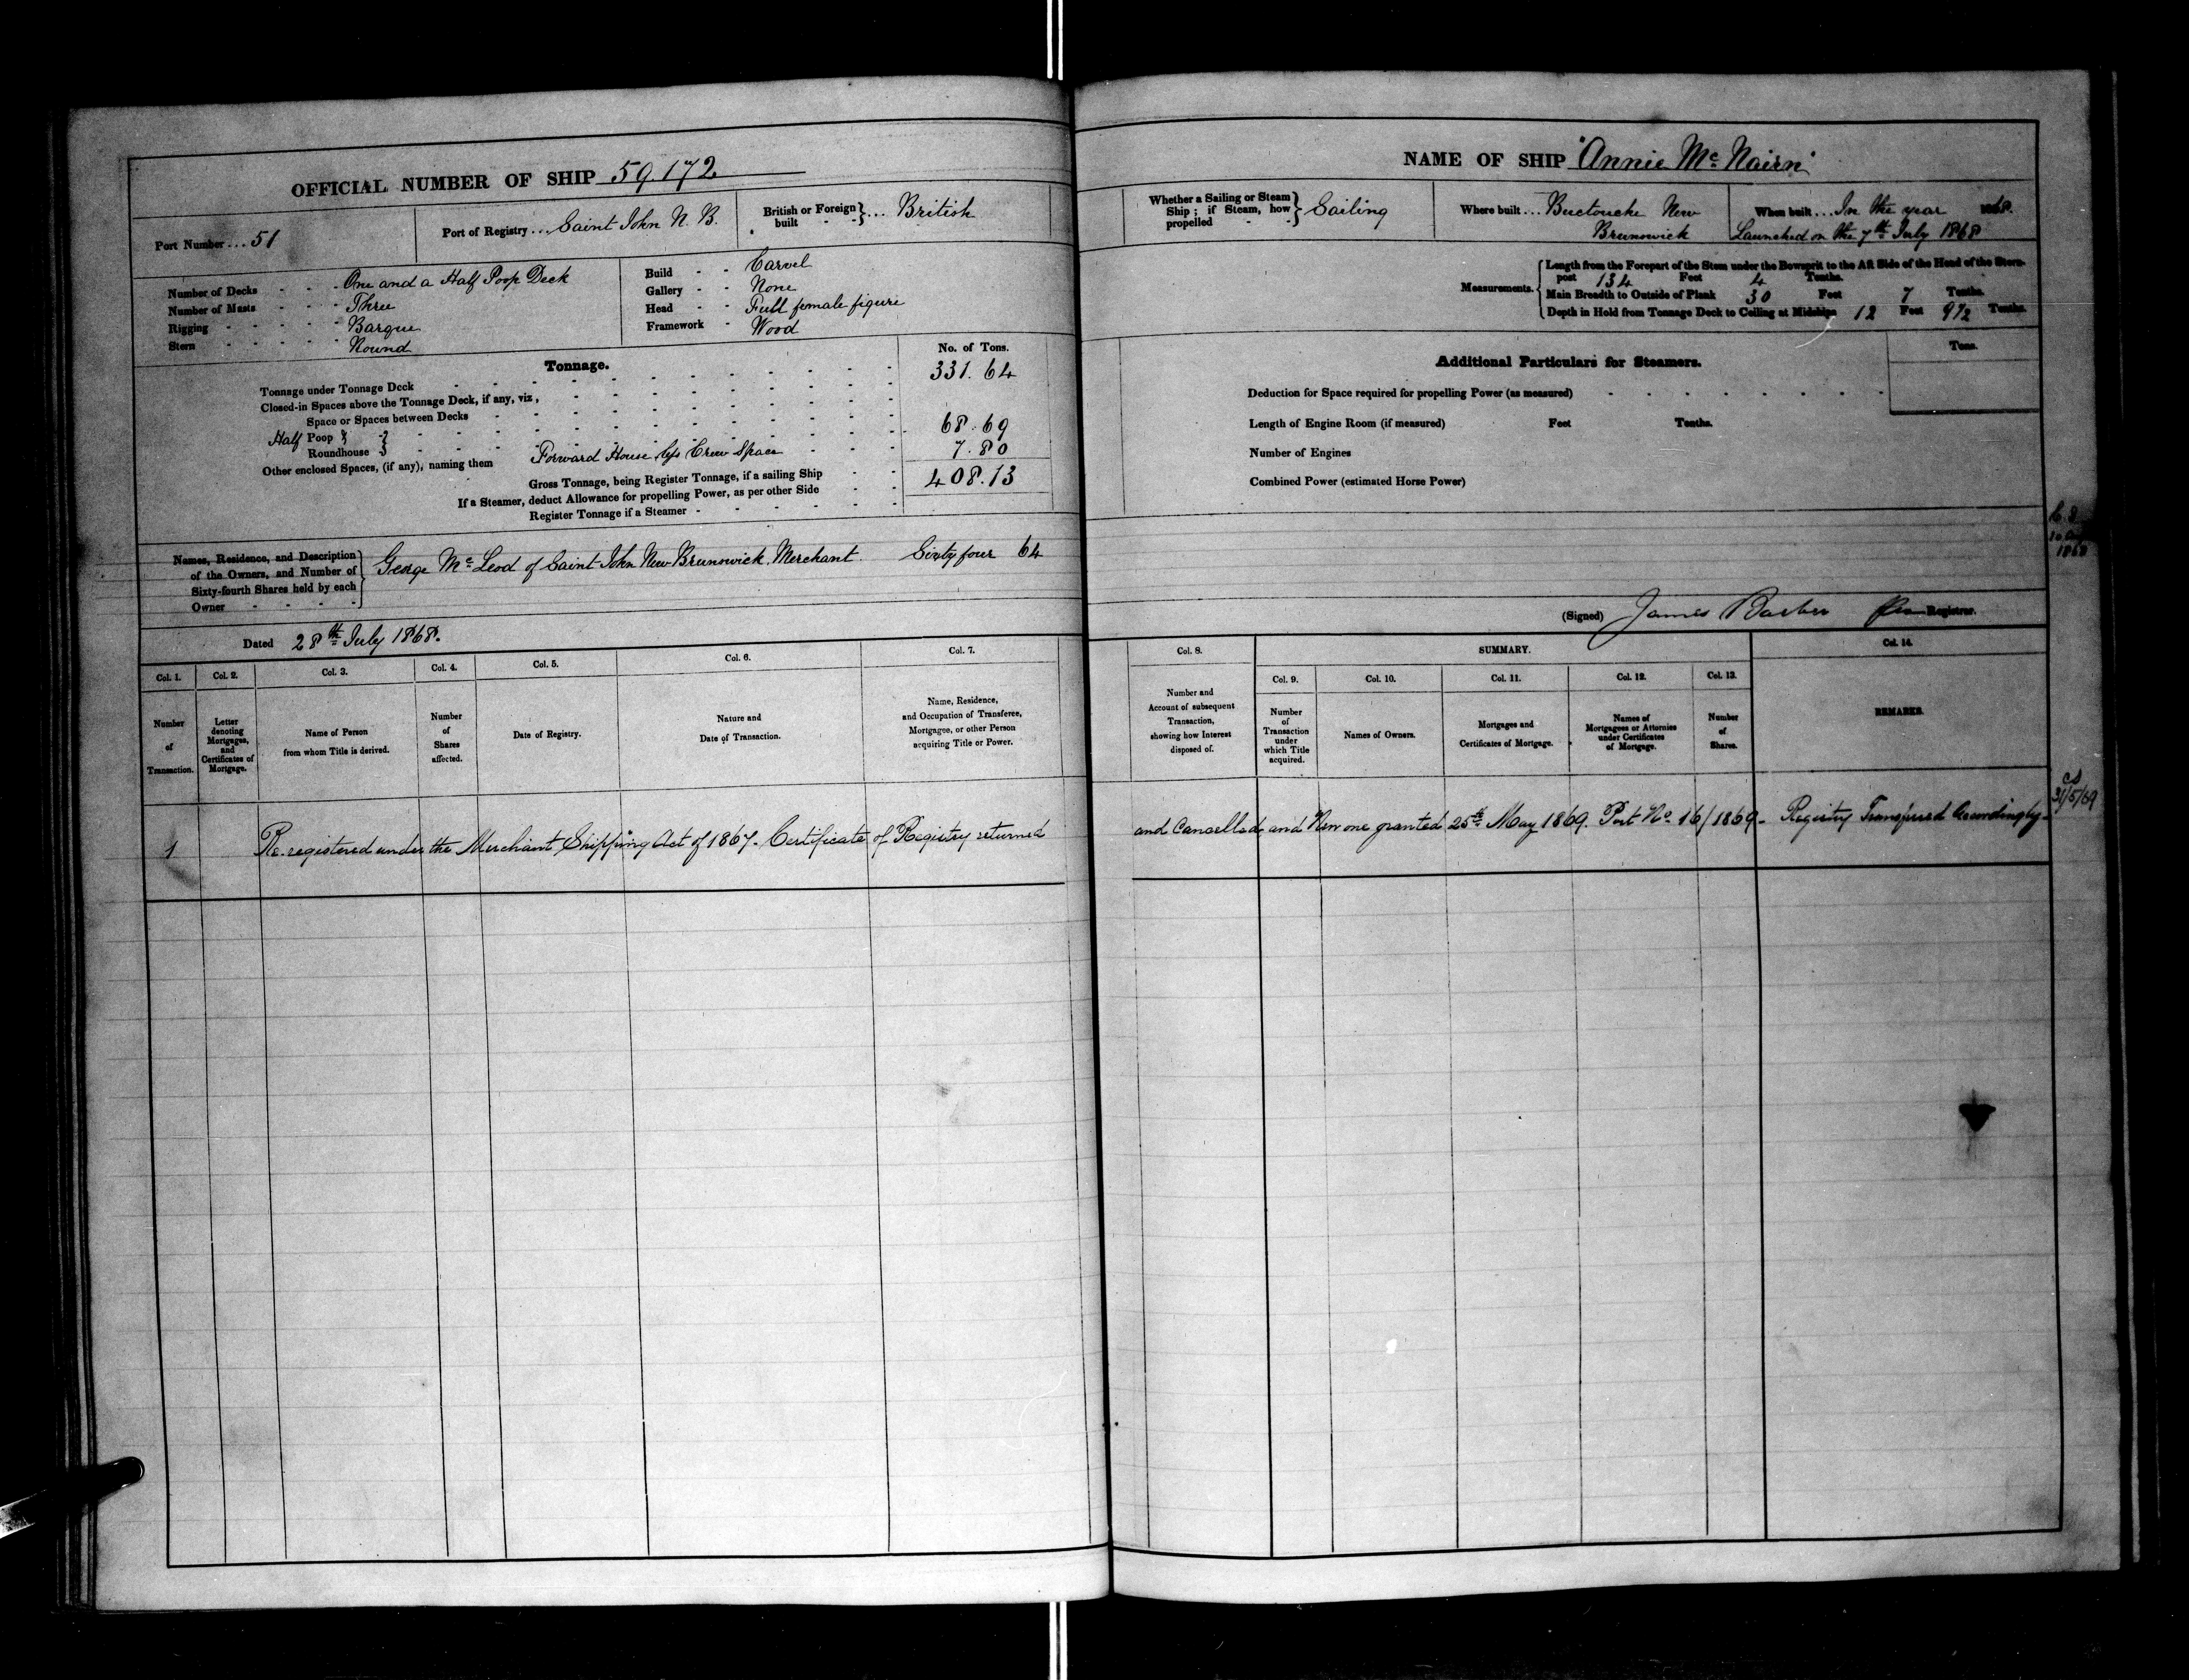 OFFICIAL NUMBER OF SHIP 59.172
Port Number ... 51
Port of Registry ... Saint John N. B.
British or Foreign built } ... British
Number of Decks - - - One and a Half Poop Deck
Number of Masts - - - Three
Rigging - - - - - Barque
Stern - - - - - Round
Build - - Carvel
Gallery - - None
Head - - Full female figure
Framework - Wood
Tonnage.
No. of Tons.
Tonnage under Tonnage Deck 331.64
Closed-in Spaces above the Tonnage Deck, if any, viz,
Space or Spaces between Decks
Half Poop 68.69
Roundhouse
Other enclosed Spaces, (if any), naming them Forward House less Crew Space 7.80
Gross Tonnage, being Register Tonnage, if a sailing Ship 408.13
If a Steamer, deduct Allowance for propelling Power, as per other Side
Register Tonnage if a Steamer
Names, Residence, and Description
of the Owners, and Number of
Sixty-fourth Shares held by each
Owner
George McLeod of Saint John New Brunswick. Merchant Sixty four 64
Dated 28th July 1868.
Col. 1. Col. 2. Col. 3. Col. 4. Col. 5. Col. 6. Col. 7.
Number of Transaction.
Letter denoting Mortgages, and Certificates of Mortgage.
Name of Person from whom Title is derived.
Number of Shares affected.
Date of Registry.
Nature and Date of Transaction.
Name, Residence, and Occupation of Transferee, Mortgagee, or other Person acquiring Title or Power.
1 Re-registered under the Merchant Shipping Act of 1867. Certificate of Registry returned
NAME OF SHIP "Annie McNairn"
Whether a Sailing or Steam Ship; if Steam, how propelled } Sailing
Where built ... Buctouche New
Brunswick
When built ... In the year 1868.
Launched on the 7th July 1868
Measurements.
Length from the Forepart of the Stem under the Bowsprit to the Aft Side of the Head of the Stern-
post 134 Feet 4 Tenths.
Main Breadth to Outside of Plank 30 Feet 7 Tenths.
Depth in Hold from Tonnage Deck to Ceiling at Midships 12 Feet 9½ Tenths.
Additional Particulars for Steamers.
Tons.
Deduction for Space required for propelling Power (as measured)
Length of Engine Room (if measured) Feet Tenths.
Number of Engines
Combined Power (estimated Horse Power)
1868
(Signed) James Barber Registrar.
Col. 8. SUMMARY. Col. 14.
Col. 9. Col. 10. Col. 11. Col. 12. Col. 13.
Number and Account of subsequent Transaction, showing how Interest disposed of.
Number of Transaction under which Title acquired.
Names of Owners.
Mortgages and Certificates of Mortgage.
Names of Mortgagees or Attornies under Certificates of Mortgage.
Number of Shares.
REMARKS.
and Cancelled and New one granted 25th May 1869. Port No. 16/1869. Registry Transferred Accordingly.
CS
31/5/69